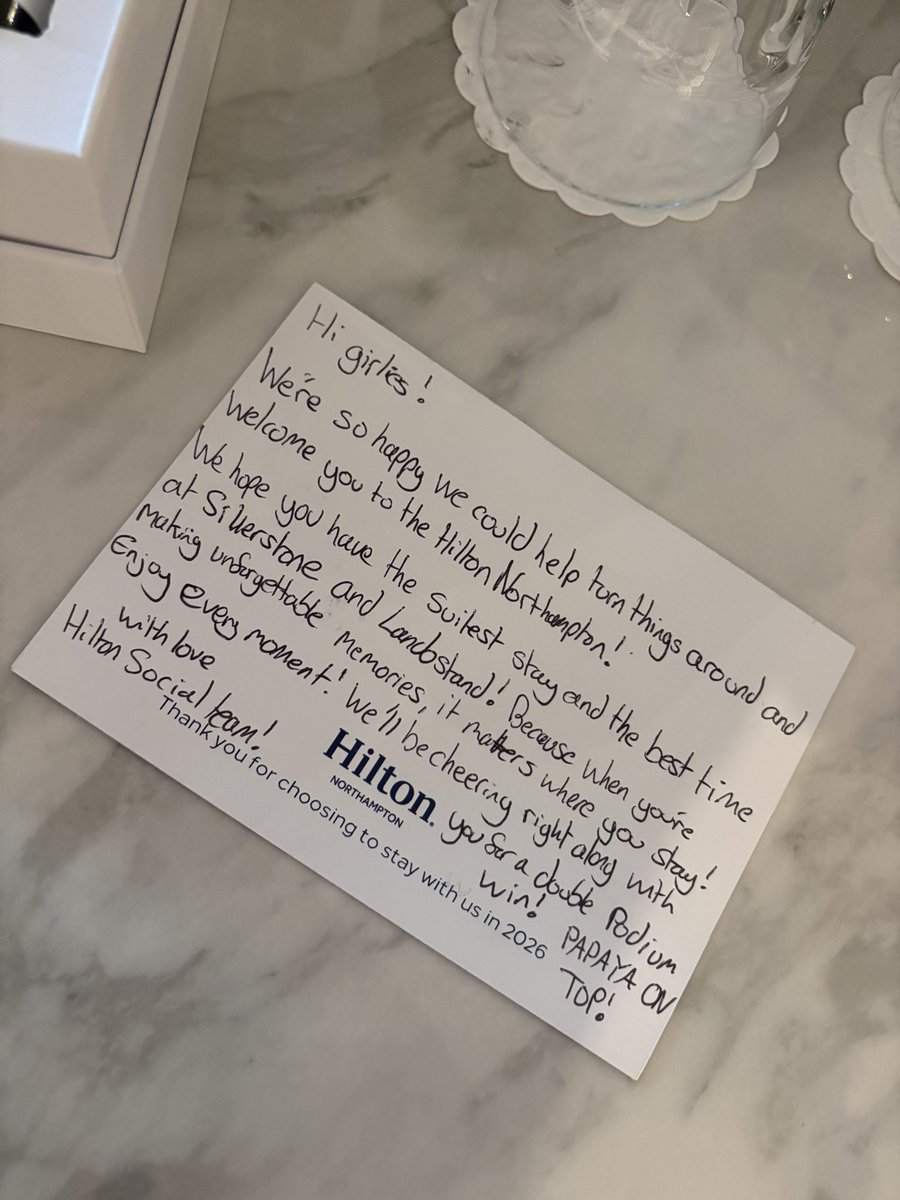 Hi girlies!
We're so happy we could help turn things around and
welcome you to the Hilton Northampton!
We hope you have the suitest stay and the best time
at Silverstone and Landostand! Because when you're
making unforgettable memories, it matters where you stay!
Enjoy every moment! We'll be cheering right along with
you for a double Podium
win!
PAPAYA ON
TOP!
with love
Hilton Social team!
Hilton
NORTHAMPTON
Thank you for choosing to stay with us in 2026